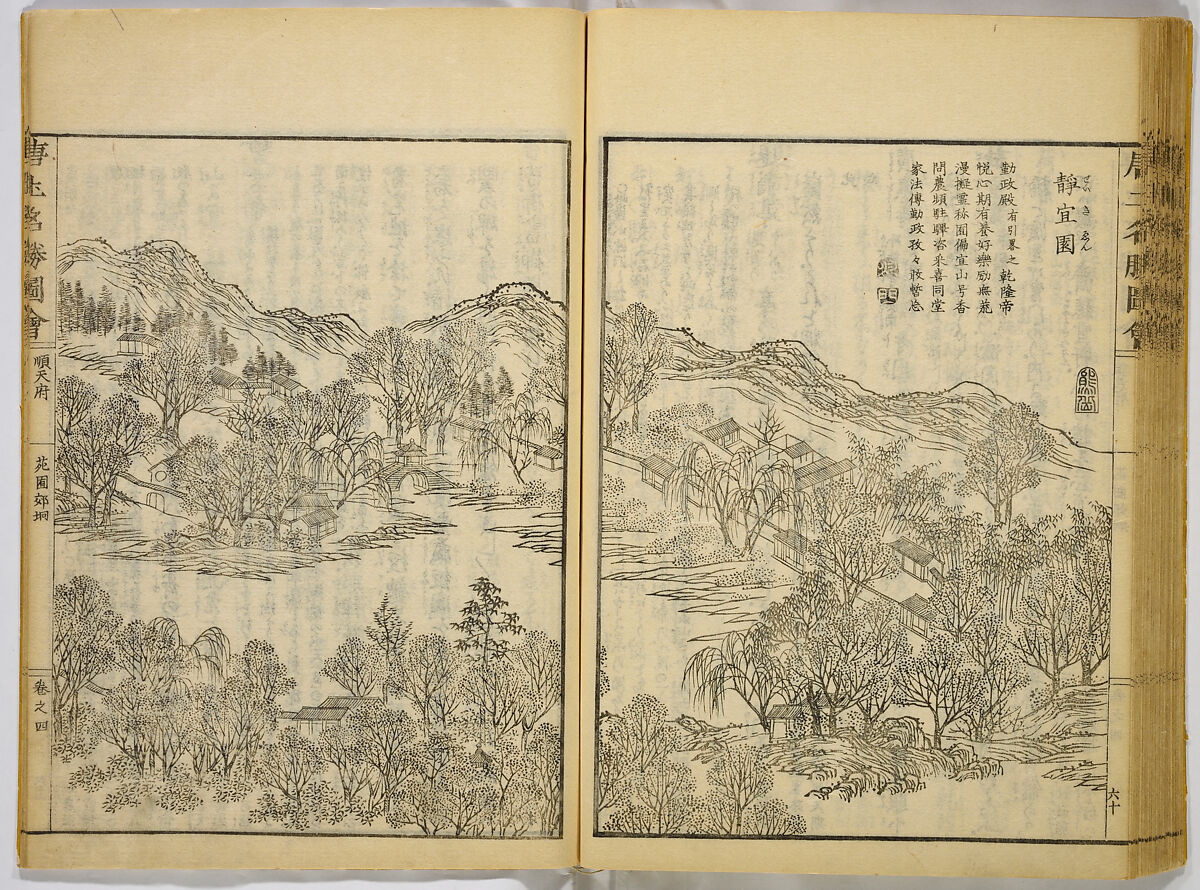 唐土名勝圖會
六十
靜宜園
せいぎゑん
勤政殿 有引畧之 乾隆帝
悅心期有養好樂勵無荒
漫擬靈称囿偏宜山号香
問農頻駐蹕咨采喜同堂
家法傳勤政孜々敢暫忘
唐土名勝圖會
順天府
苑囿郊坰
卷之四